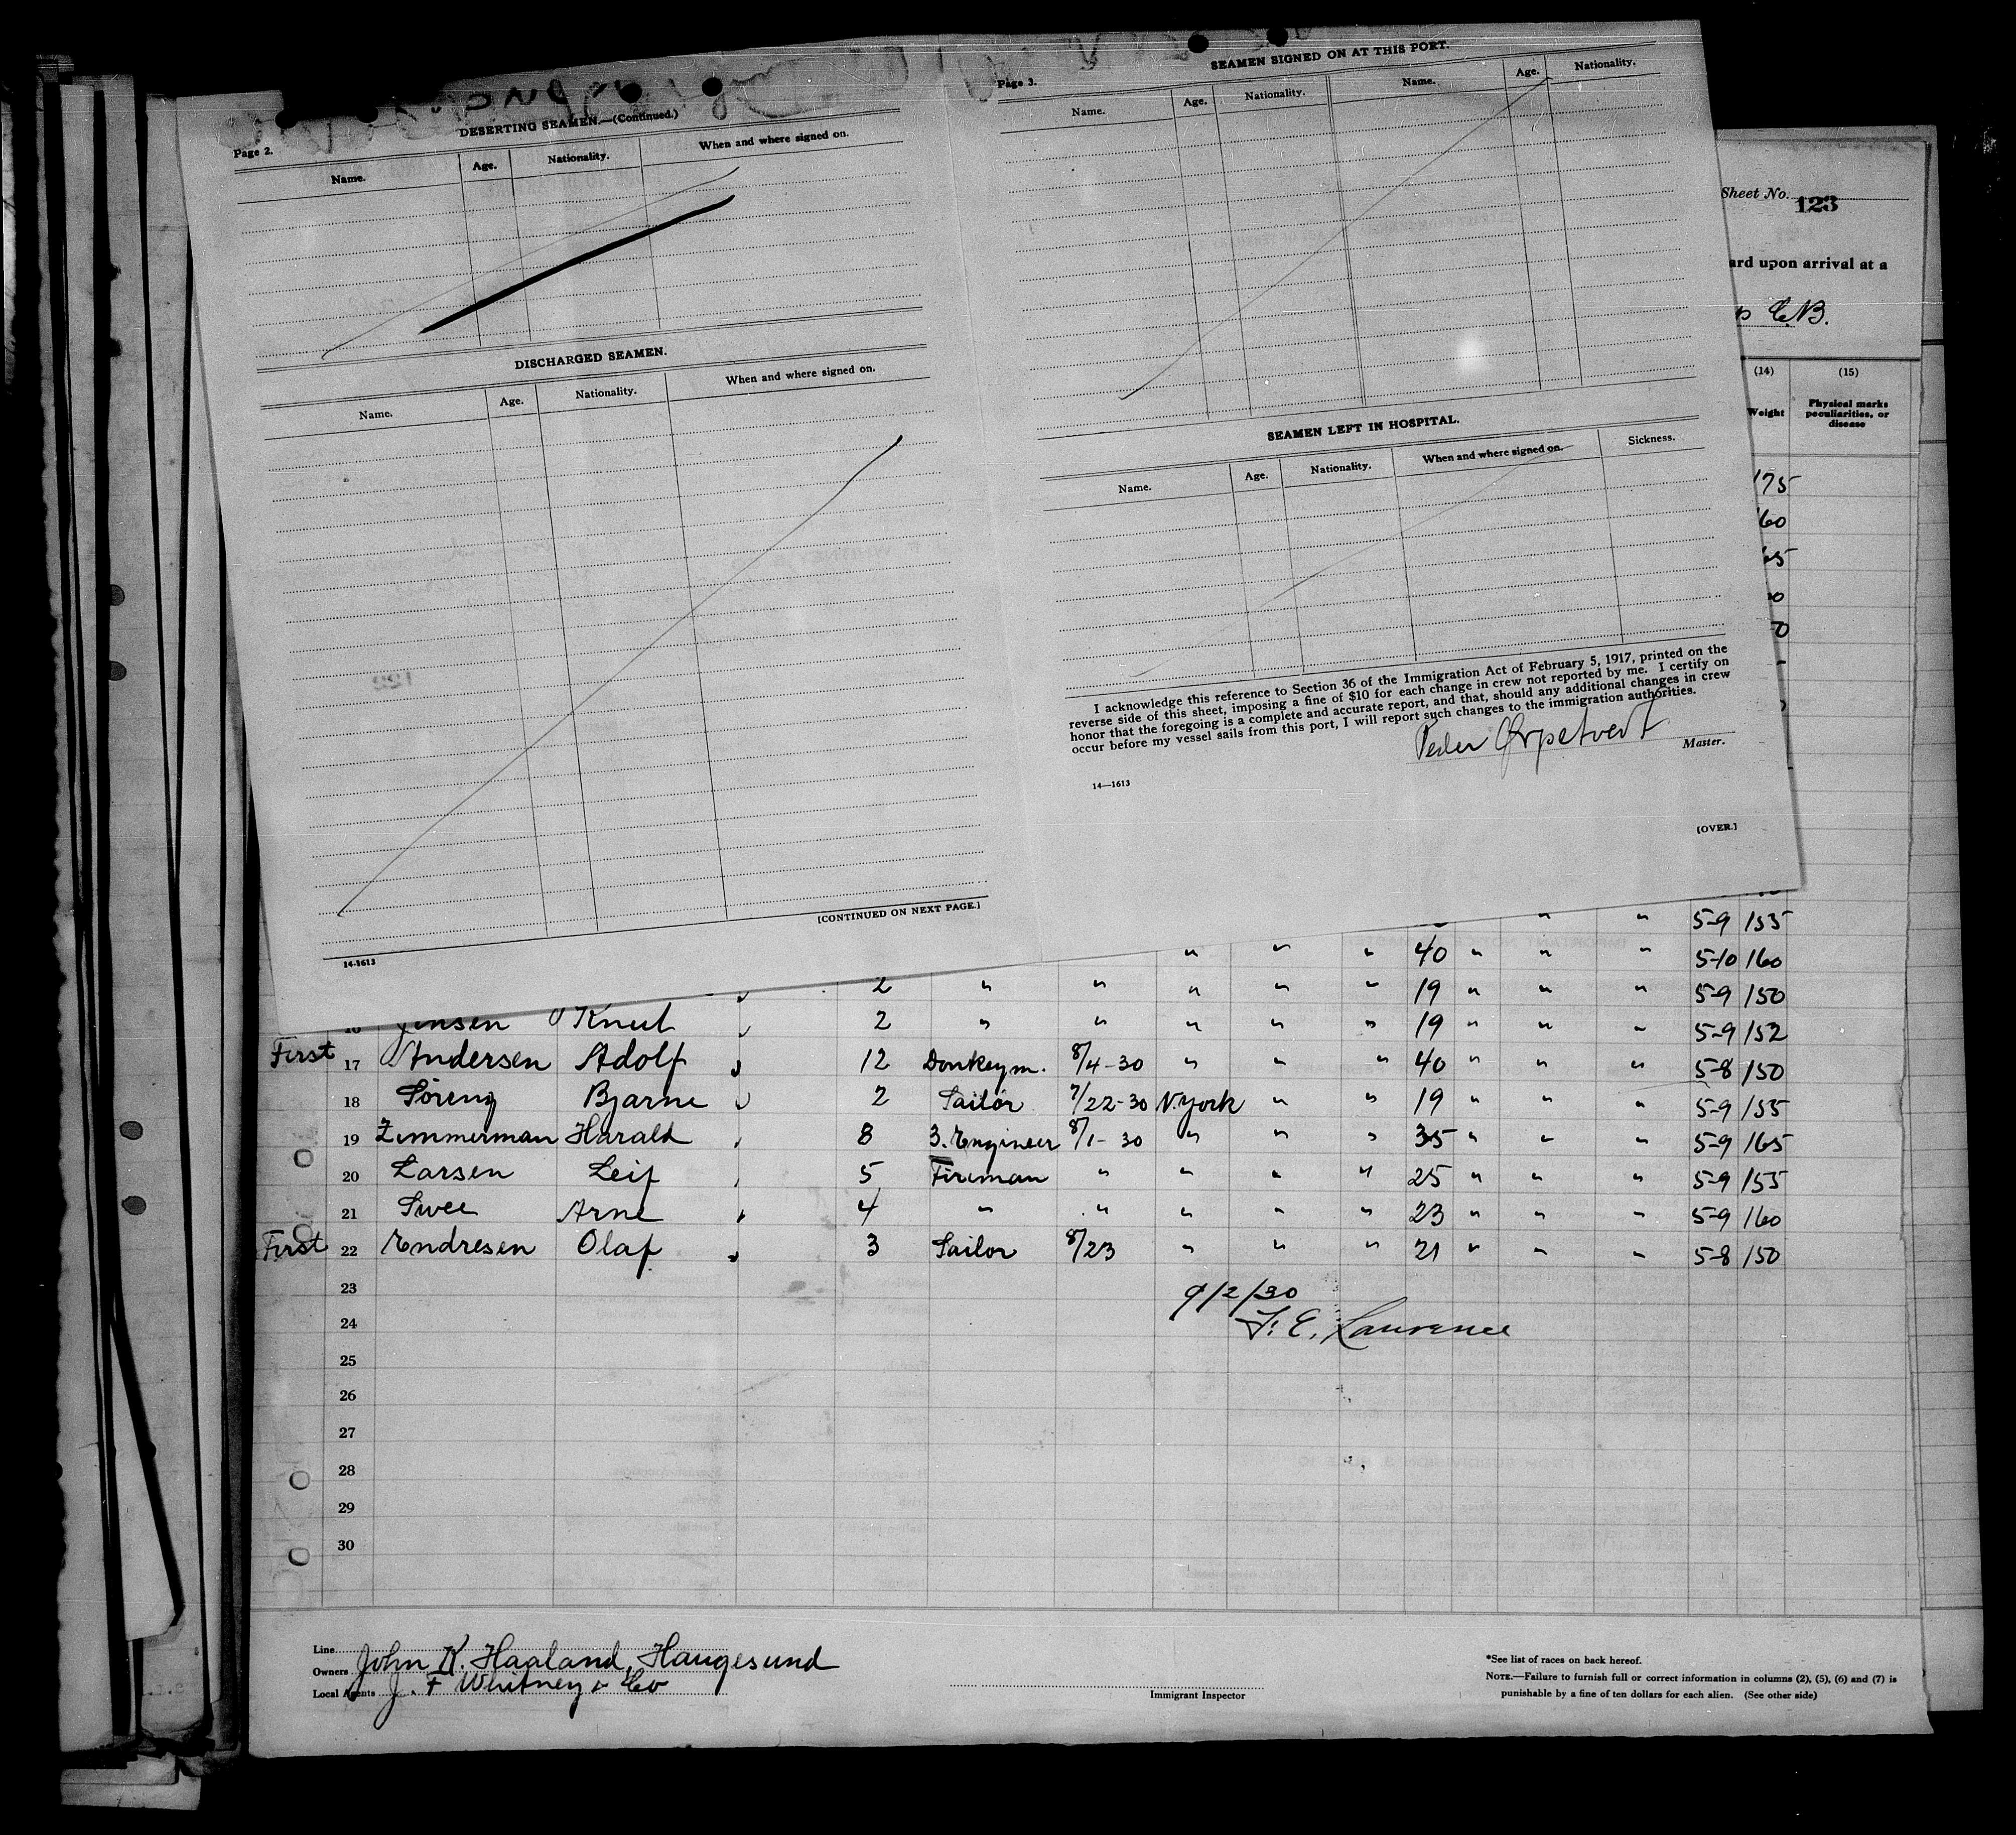 Page 2.
DESERTING SEAMEN.—(Continued.)
Name. Age. Nationality. When and where signed on.
DISCHARGED SEAMEN.
Name. Age. Nationality. When and where signed on.
[CONTINUED ON NEXT PAGE.]
14-1613
Page 3.
SEAMEN SIGNED ON AT THIS PORT.
Name. Age. Nationality. Name. Age. Nationality.
SEAMEN LEFT IN HOSPITAL.
Name. Age. Nationality. When and where signed on. Sickness.
I acknowledge this reference to Section 36 of the Immigration Act of February 5, 1917, printed on the
reverse side of this sheet, imposing a fine of $10 for each change in crew not reported by me. I certify on
honor that the foregoing is a complete and accurate report, and that, should any additional changes in crew
occur before my vessel sails from this port, I will report such changes to the immigration authorities.
Peder Ørpetvedt
Master.
14—1613
[OVER.]
Sheet No. 123
ard upon arrival at a
C.B.
(14) (15)
Weight Physical marks
peculiarities, or
disease
175
60
65
" " 5-9 155
" " " 40 " " " 5-10 160
2 " " " " " 19 " " " 5-9 150
16 Jensen Knut " 2 " " " " " 19 " " " 5-9 152
First 17 Andersen Adolf " 12 Donkeym. 8/4-30 " " " 40 " " " 5-8 150
18 Søreng Bjarne " 2 Sailor 7/22-30 N.York " " 19 " " " 5-9 155
19 Zimmerman Harald " 8 3.Engineer 8/1-30 " " " 35 " " " 5-9 165
20 Larsen Leif " 5 Fireman " " " " 25 " " " 5-9 155
21 Svee Arne " 4 " " " " " 23 " " " 5-9 160
First 22 Endresen Olaf " 3 Sailor 8/23 " " " 21 " " " 5-8 150
23
9/2/30
24
F. E. Laurence
25
26
27
28
29
30
Line
Owners John K. Haaland, Haugesund
Local Agents J. F Whitney & Co
Immigrant Inspector
*See list of races on back hereof.
NOTE.—Failure to furnish full or correct information in columns (2), (5), (6) and (7) is
punishable by a fine of ten dollars for each alien. (See other side)